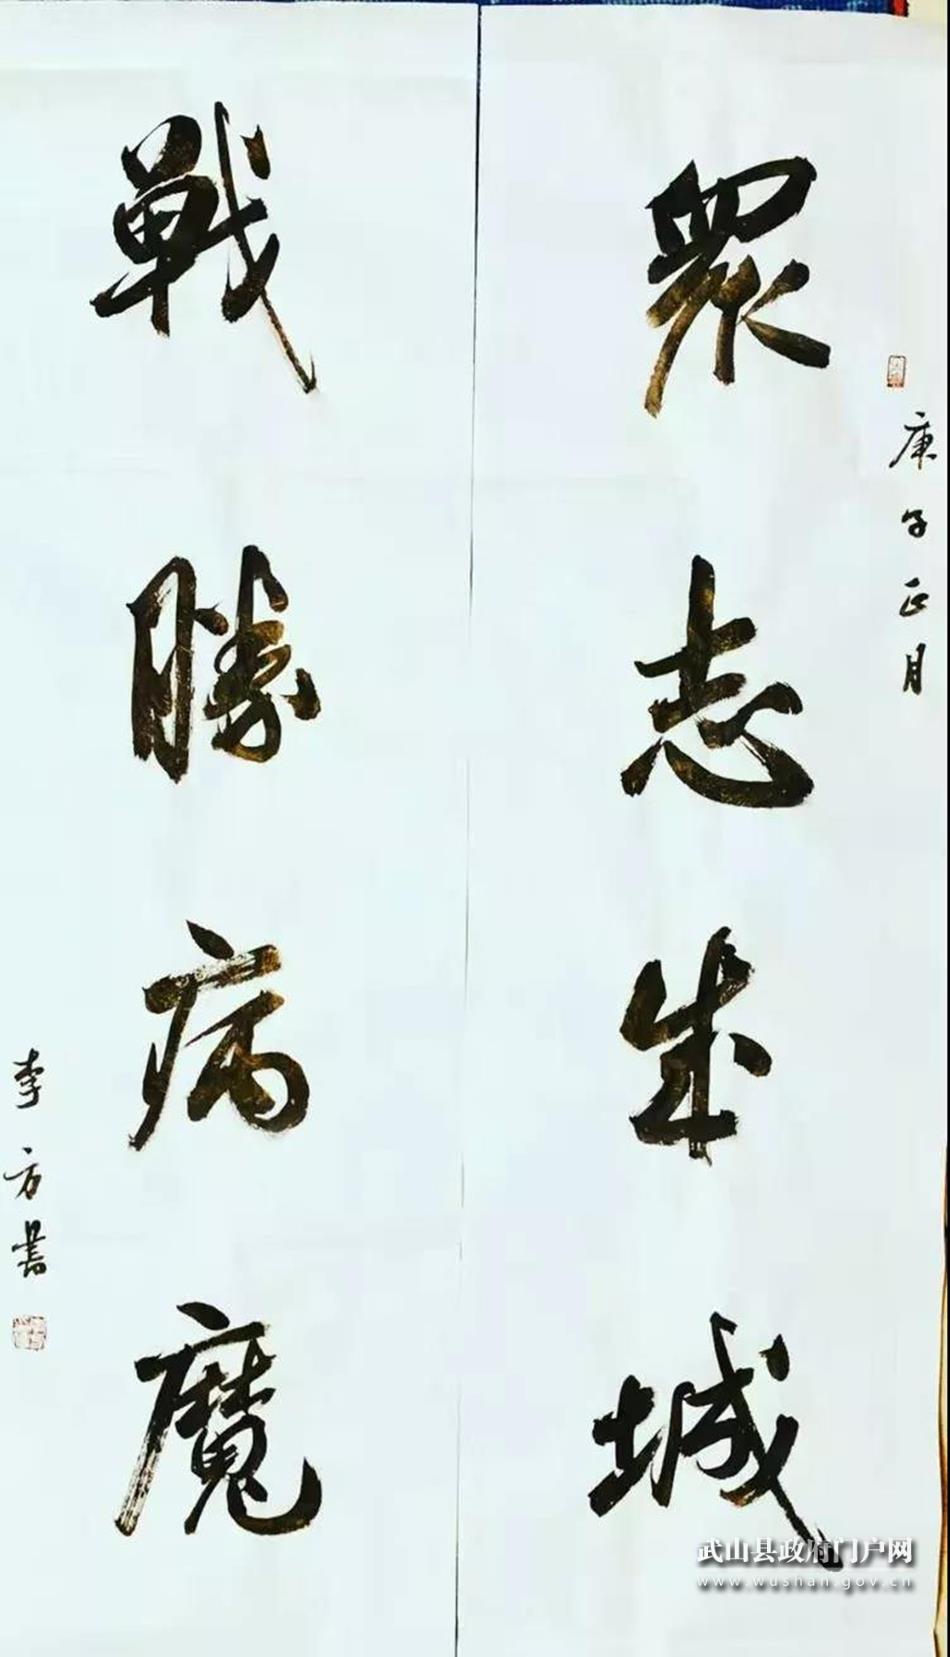 庚子正月
眾志成城
戰勝病魔
李方書
武山县政府门户网
www.wushan.gov.cn